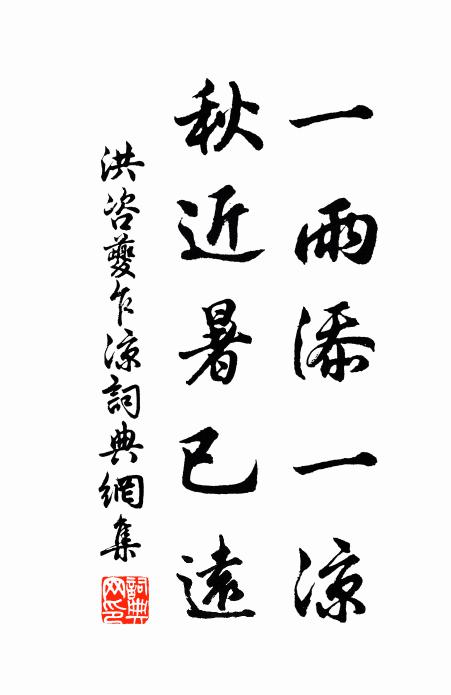 一雨添一凉
秋近暑已遠
洪咨夔乍凉詞典網集
詞典